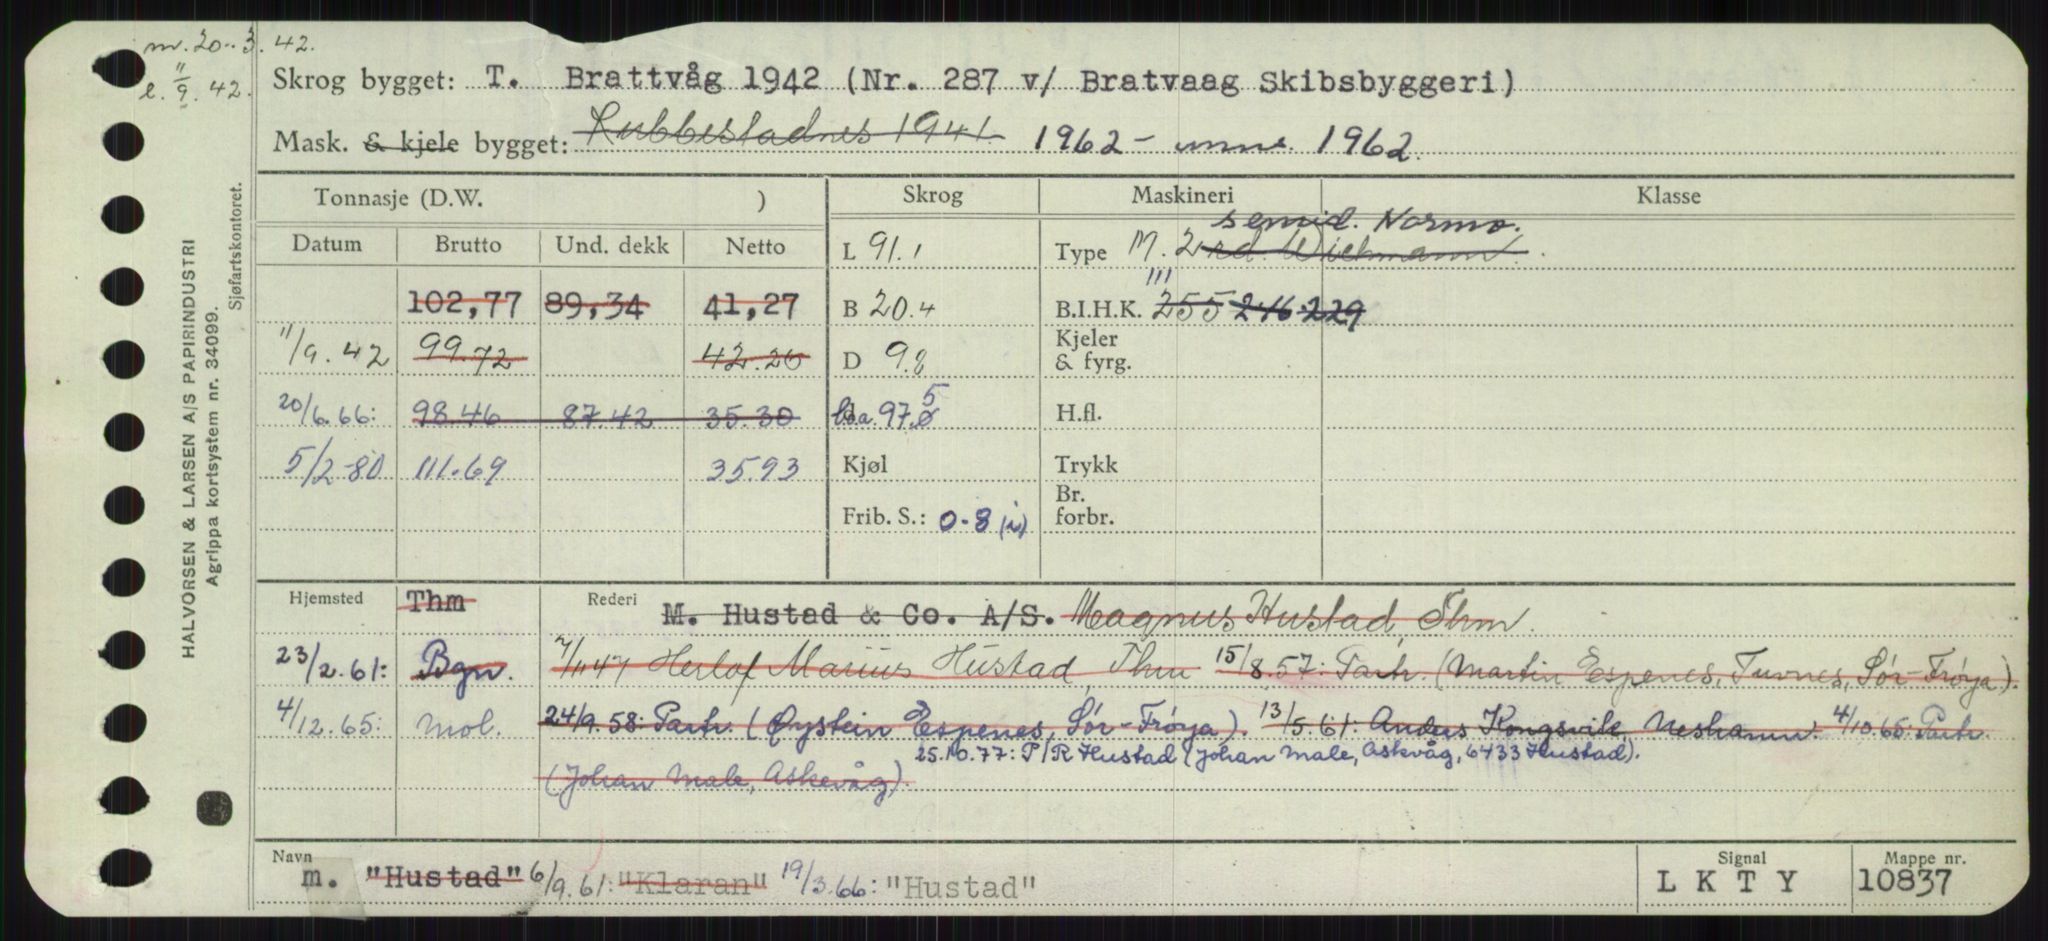 m. 20.3.42.
l. 11/9. 42.
Skrog bygget: T. Brattvåg 1942 (Nr. 287 v/ Bratvaag Skibsbyggeri)
Mask. & kjele bygget: Rubbestadnes 1941. 1962 - 1962.
HALVORSEN & LARSEN A/S PAPIRINDUSTRI
Agrippa kortsystem nr. 34099.
Sjøfartskontoret.
Tonnasje (D.W. )
Datum Brutto Und. dekk Netto
102,77 89,34 41,27
11/9.42 99.72 42.20
20/6.66: 98.46 87.42 35.30
5/2-80 111.69 35.93
Skrog
L 91.1
B 20.4
D 9.8
l.o.a. 97.0 5
Kjøl
Frib. S.: 0-8 (i)
Maskineri
semid. Normo.
Type M. 2 rd. Wichmann.
111
B.I.H.K. 255 246 229
Kjeler
& fyrg.
H.fl.
Trykk
Br.
forbr.
Klasse
Hjemsted Thm Rederi M. Hustad & Co. A/S. Magnus Hustad, Thm.
23/2.61: Bgn. 7/11 47 Herlof Marius Hustad, Thm 15/8.57: Partr. (Martin Espenes, Tuvnes, Sör-Fröya).
4/12.65: Mol. 24/9.58: Partr. (Øystein Espenes, Sör-Fröya). 13/5.61: Anders Kongsvik, Neshamn. 4/10.65: Partr.
25.10.77: P/R Hustad (Johan Male, Askvåg, 6433 Hustad).
(Johan Male, Askevåg).
Navn
m. "Hustad" 6/9.61: "Klaran" 19/3.66: "Hustad"
Signal
L K T Y
Mappe nr.
10837